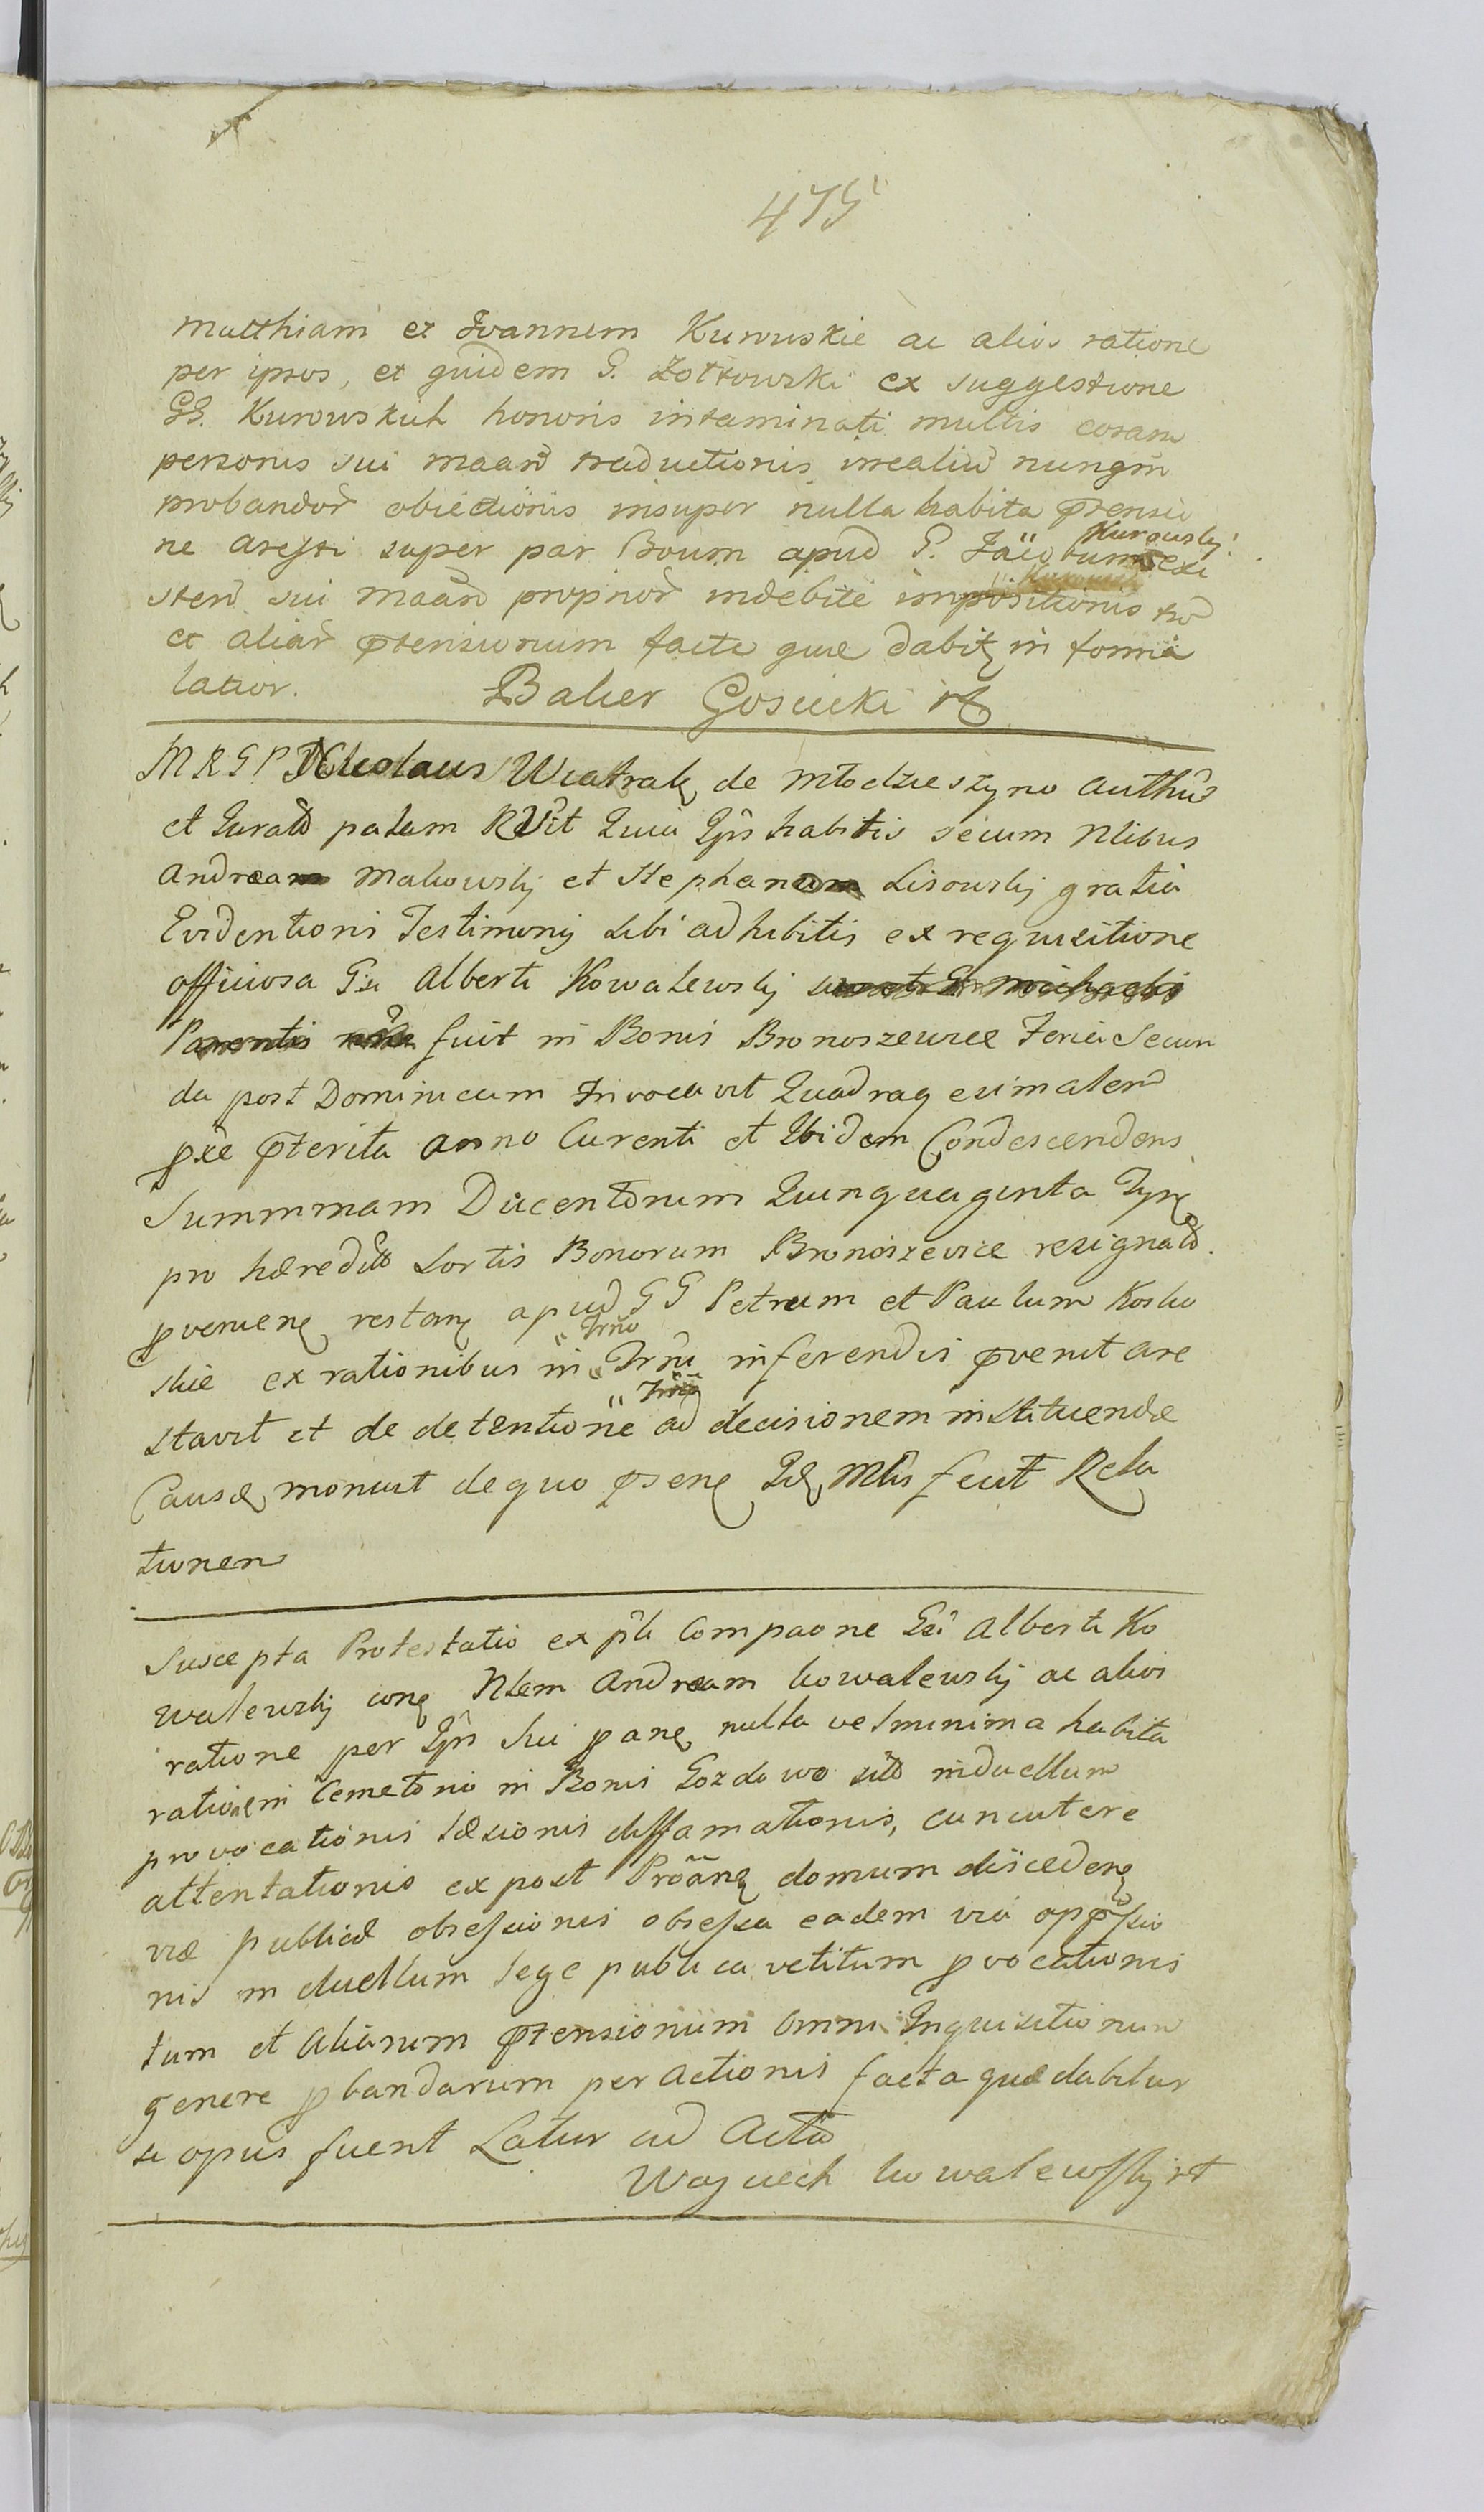 475
Matthiam et Joannem Kurowskie ac alios ratione
per ipsos, et quidem G. Zołtowski ex suggestione
GG. Kurowskich honoris intaminati multis coram
personis sui maand traductionis irrealiũ nunqm̃
probandor obiectionis insuper nulla habita ptensio
ne aresti super par Boum apud G. Jacobum Kurowskj exi
sten sui maand proprior indebite impositionis
et aliar ptensionum facta quæ dabitz in forma
latior. Balcer Gosciicki
M R G P Nicolaus Wiatrak de Młodzieszyno Authũ
et Jurato palam RVit Quia Ipŝ habitis secum Nlibus
Andrea Makowskj et Stephan Lisowskj gratia
Evidentioris Testimonij sibi adhibitis ex requisitione
officiosa Gsi Alberti Kowalewskj
fuit in Bonis Bronoszewice Feria Secun
da post Dominicam Invocavit Quadragesimalem
pxe pterita anno Curenti et Ibidem Condescendens
Summmam Ducentorum Quinquaginta
pro hæredtto Sortis Bonorum Bronoszewice resignato
pvenienē restanē apud GG Petrum et Paulum Kosko
skie ex rationibus in inferendis pvenit are
stavit et de detentione ad decisionem instituendæ
Causæ monuit de quo psenē Idē Mlis fecit Rela
tionem
Suscepta Protestatio ex pŝli Compaone Gsi Alberti Ko
walewskj conē Nlem Andream kowalewskj ac alios
ratione per Ipŝ sui panē nulla vel minima habita
ratione in Cemetorio in Bonis Gozdowo sito induellum
provocationis læsionis diffamationis, concutere
attentationis expost Prõãnē domum discedenē
viæ publicæ obsessionis obsessa eadem via oppssio
nis in duellum lege publica vetitum pvocationis
tum et aliarum ptensionum omni Inquisitionum
genere pbandarum per actionis facta quæ dabitur
si opus fuerit Latur ad Acta
Woyciech kowalewskj